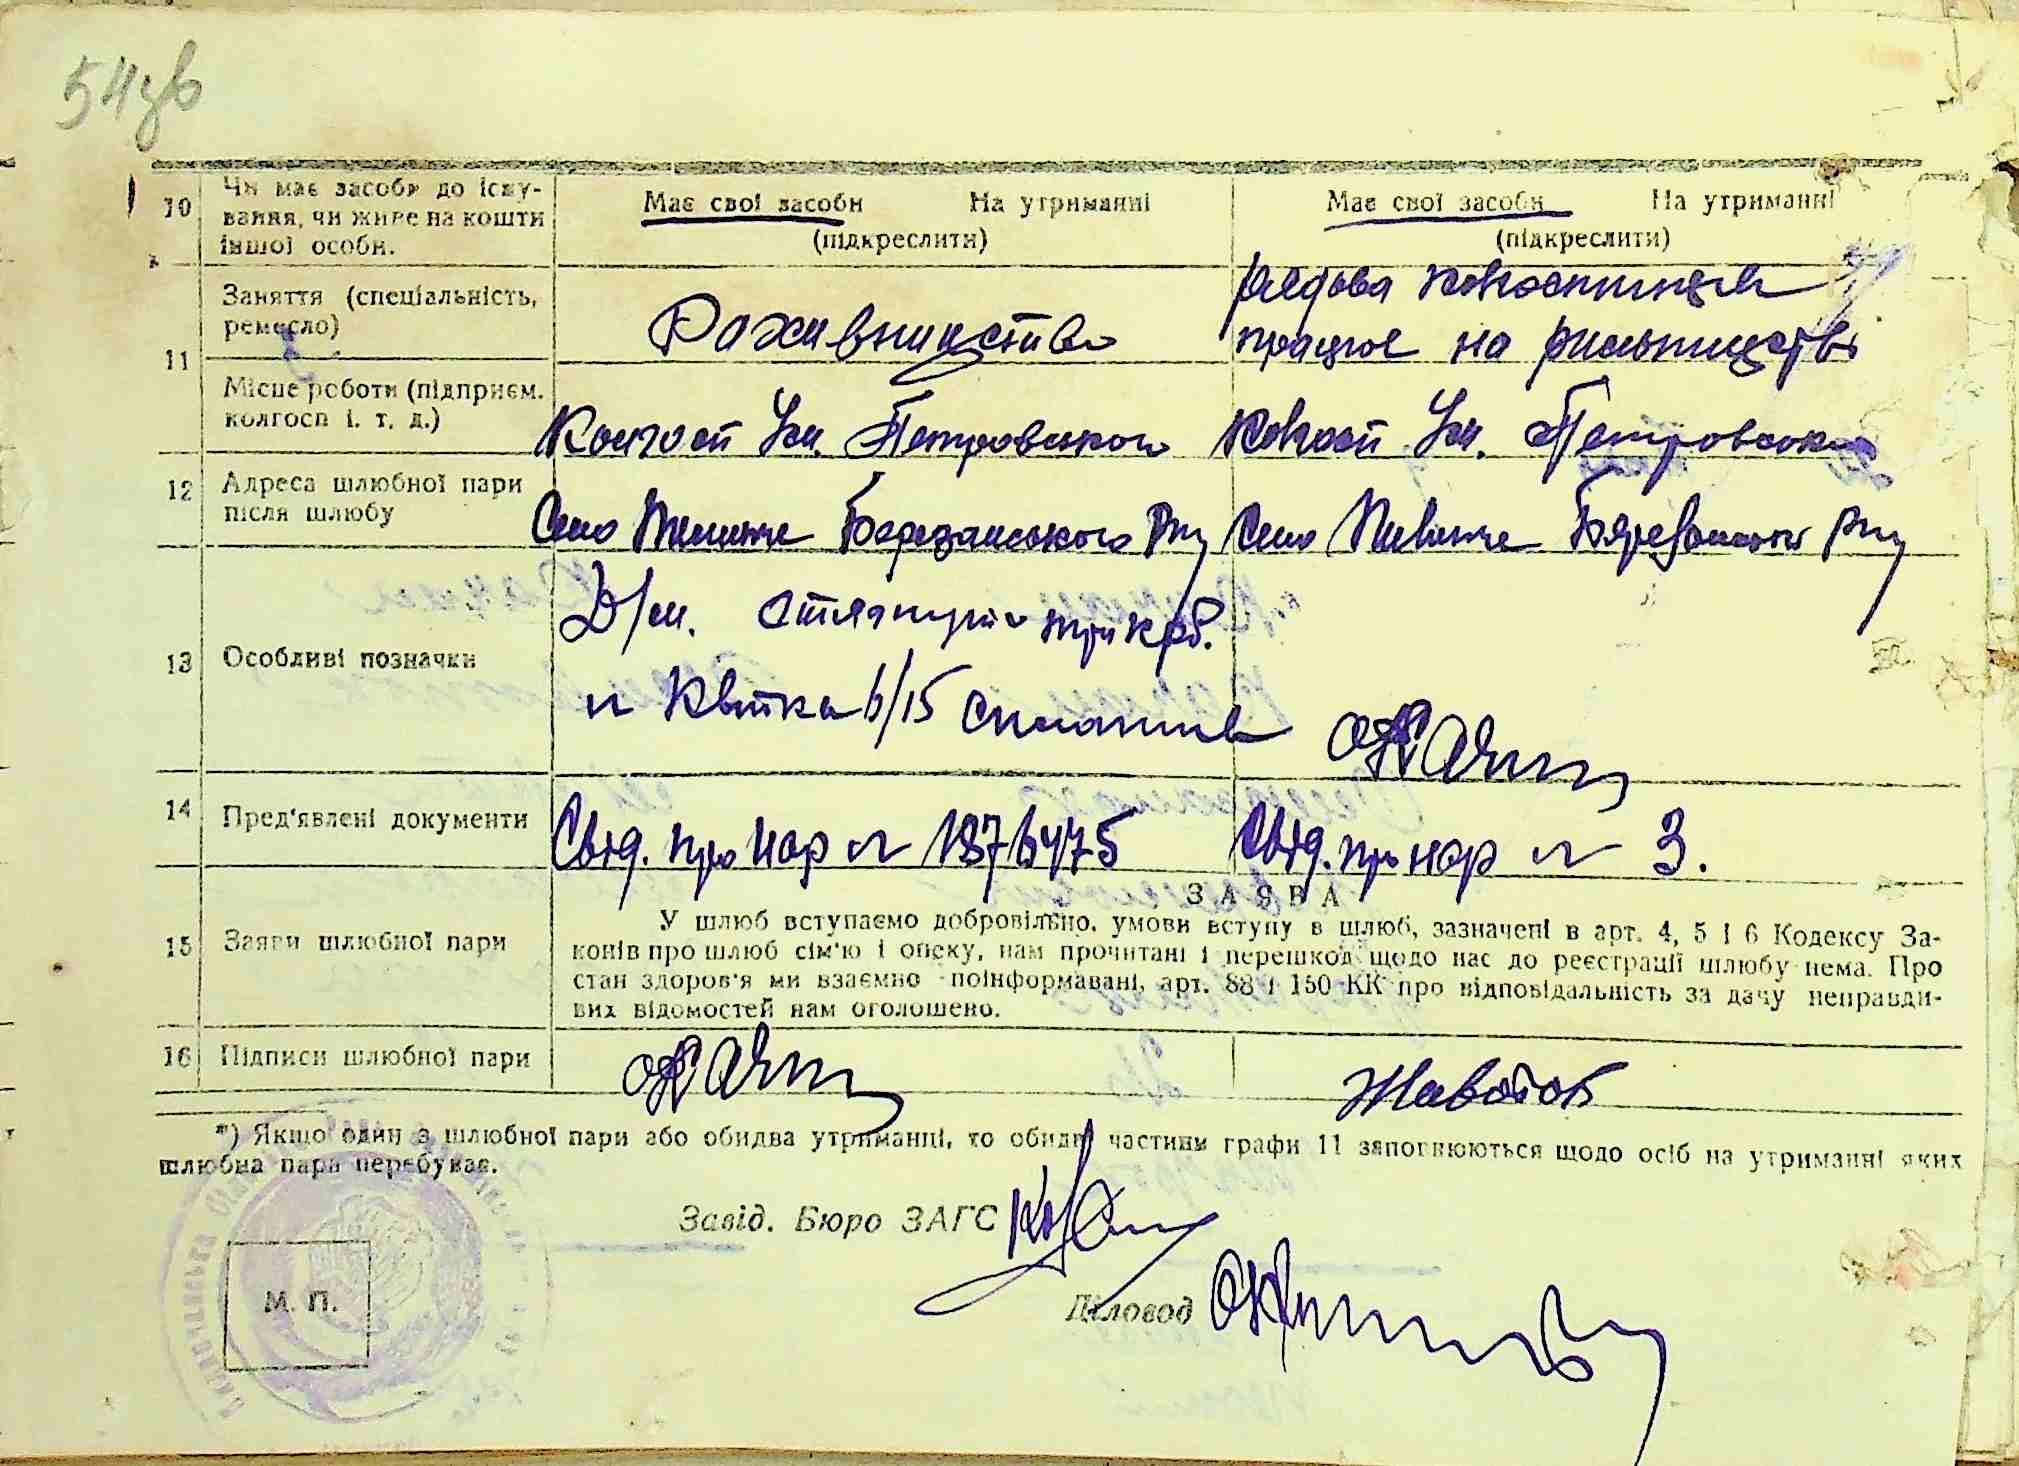 54зв
10 Чи має засоби до існу-
вання, чи живе на кошти
іншої особи.
Має свої засоби На утриманні
(підкреслити)
Має свої засоби На утриманні
(підкреслити)
11 Заняття (спеціальність,
ремесло)
рядова
працює на рильництві
Місце роботи (підприєм.
колгосп і. т. д.)
Колгосп Ім. Петровського
Колгосп Ім. Петровського
12 Адреса шлюбної пари
після шлюбу
Село Березанського Р-ну
Село Березанського Р-ну
13 Особливі позначки
Д/м. стягнуто 3 крб.
Квитка 6/15
14 Пред'явлені документи
Свід. про нар № 1376475
Свід. про нар № 3.
15 Заяви шлюбної пари
ЗАЯВА
У шлюб вступаємо добровільно, умови вступу в шлюб, зазначені в арт. 4, 5 і 6 Кодексу За-
конів про шлюб сім'ю і опеку, нам прочитані і перешкод щодо нас до реєстрації шлюбу нема. Про
стан здоров'я ми взаємно поінформавані, арт. 88 і 150 КК про відповідальність за дачу неправди-
вих відомостей нам оголошено.
16 Підписи шлюбної пари
*) Якщо один з шлюбної пари або обидва утриманці, то обидві частини графи 11 заповнюються щодо осіб на утриманні яких
шлюбна пара перебуває.
Завід. Бюро ЗАГС
М. П.
Діловод